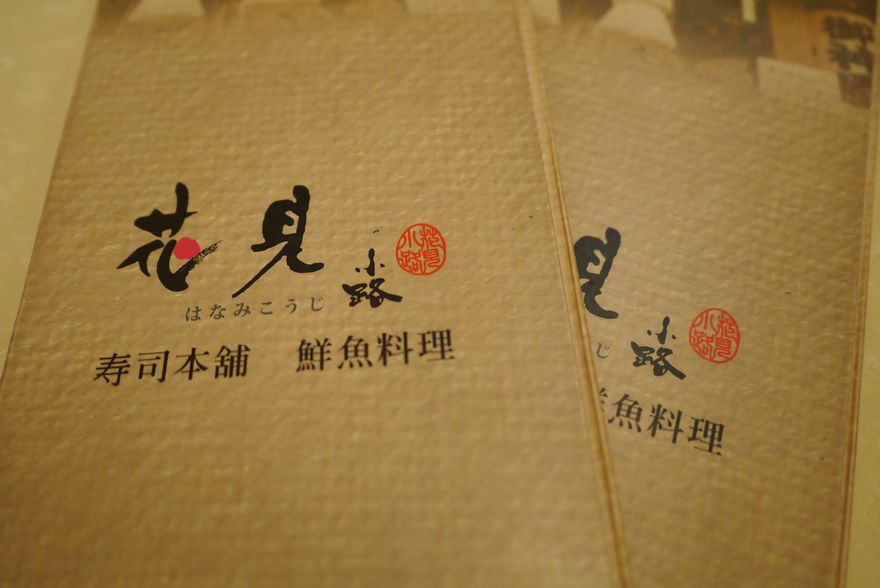 花見小路
花見小路
はなみこうじ
寿司本舖 鮮魚料理
見小路
花見小路
じ
魚料理